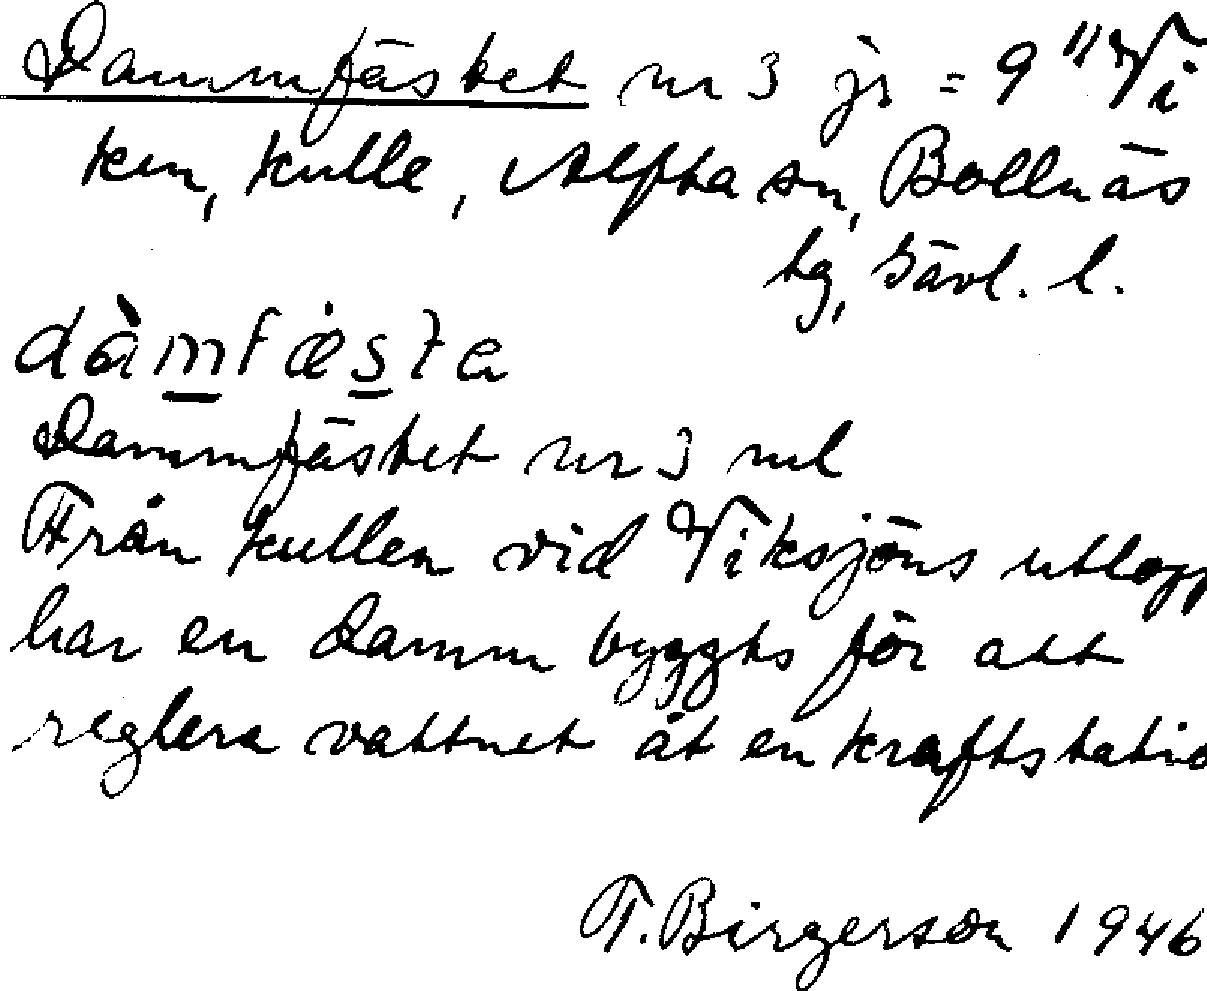 Dammfästet nr 3 jr = 9 "Vi
ken, kulle, Alfta sn, Bollnäs
tg, Gävl. l.
dàmfæsta
Dammfästet nr 3 ml
Från kullen vid Viksjöns utlopp
har en damm byggts för att
reglera vattnet åt en kraftstatio
T. Birgerson 1946